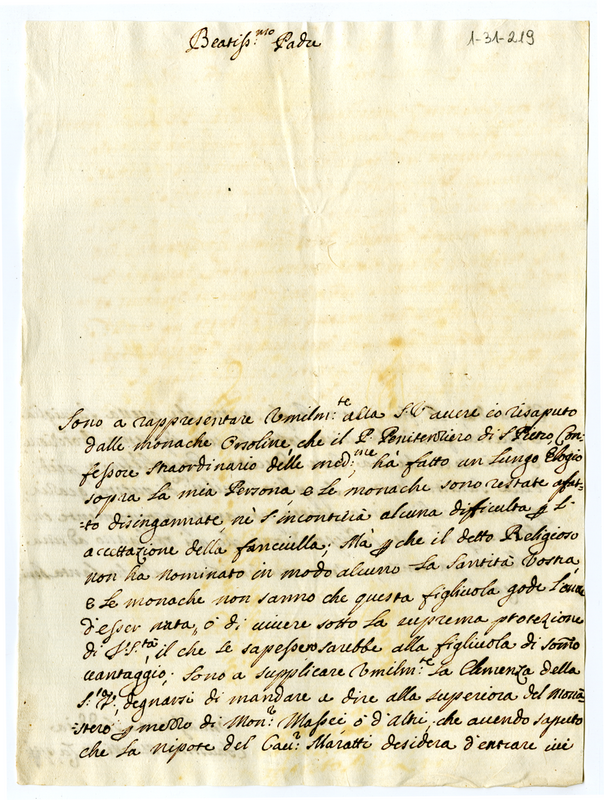 Beatiss:mo Padre
1-31-219
Sono a rappresentare Vmilm:te alla S.V avere io risaputo
dalle monache Orsoline, che il P. Penitenziero di S Pietro, Con-
fessore straordinario delle med:me hà fatto un lungo Elogio
sopra la mia Persona e le monache sono restate affat-
-to disingannate, nè s'incontirà alcuna difficulta p l'
accettazione della fanciulla; Mà p che il detto Religioso
non ha nominato in modo alcuno La Santità Vostra,
e le monache non sanno che questa figliuola gode l'onore
d'esser nata, ò di vivere sotto la suprema protezione
di V.S.tà, il che se sapessero sarebbe alla figliuola di sommo
vantaggio; Sono a supplicare Vmilm:te La Clemenza della
S:V:, degnarsi di mandare a dire alla superiora del Mona-
-stero p mezzo di Mon:r Massei ò d'Altri, che avendo saputo
che la nipote del Cav:r Maratti desidera d'entrare ivi